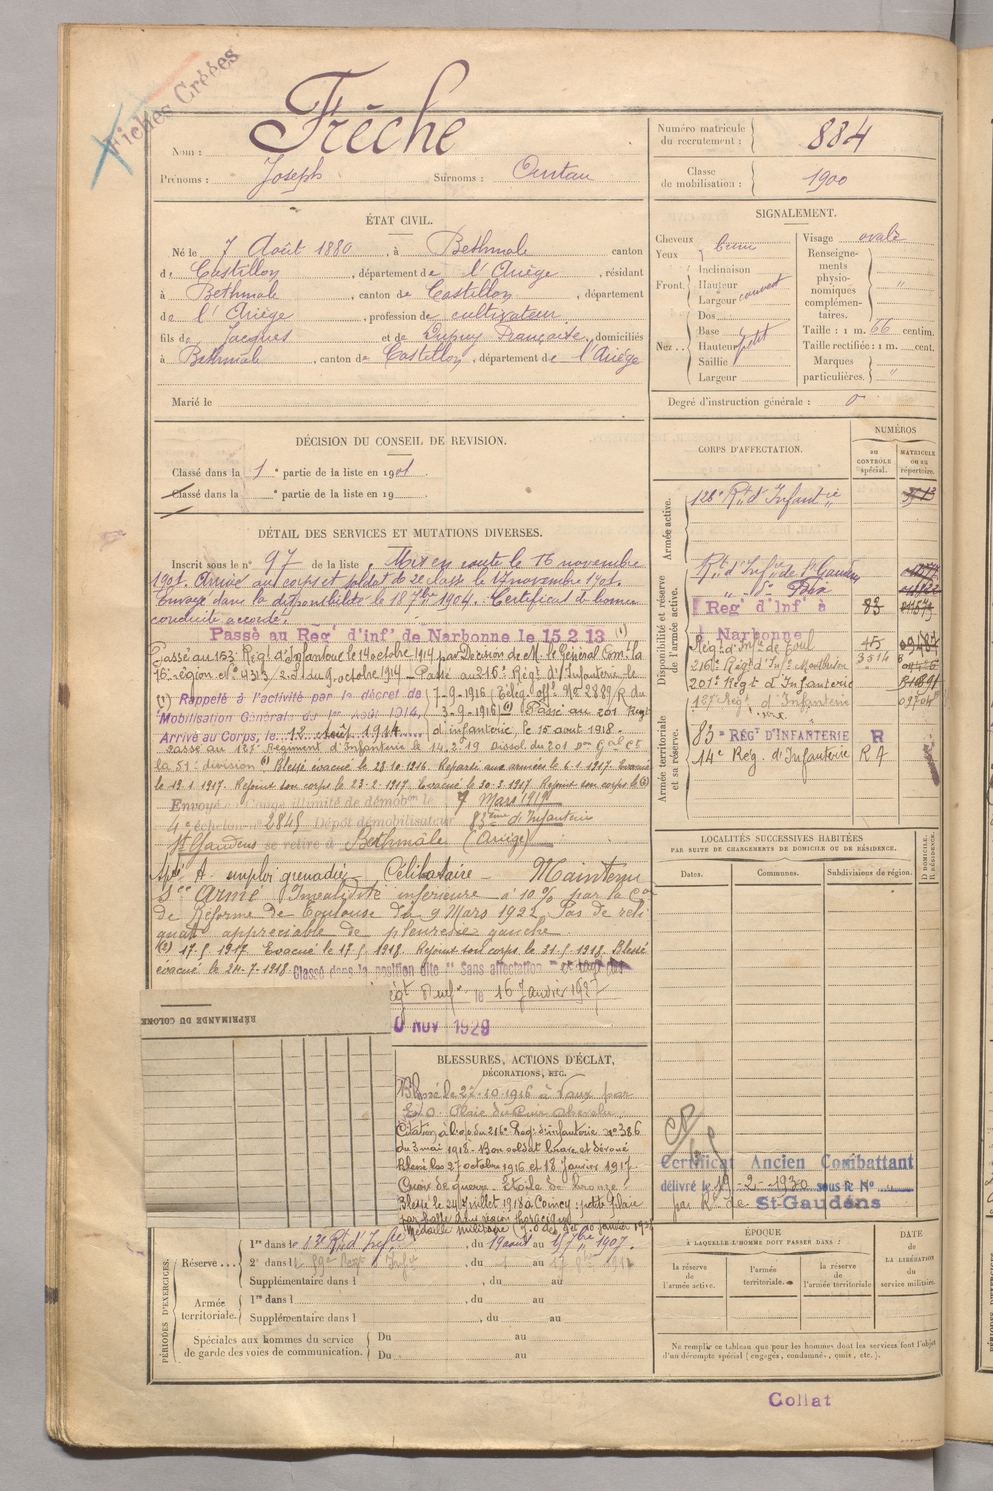 Fiches Créées
Nom : Frêche
Prénoms : Joseph Surnoms : Ourtau
Numéro matricule du recrutement : 884
Classe de mobilisation : 1900
ÉTAT CIVIL.
Né le 7 Août 1880, à Bethmale canton
de Castillon, département de l'Ariège, résidant
à Bethmale, canton de Castillon, département
de l'Ariège, profession de cultivateur
fils de Jacques et de Dupuy Françoise, domiciliés
à Bethmale, canton de Castillon, département de l'Ariège
Marié le
SIGNALEMENT.
Cheveux
Yeux brun
Front. Inclinaison
Hauteur
Largeur couvert
Nez... Dos
Base
Hauteur petit
Saillie
Largeur
Visage ovale
Renseignements physionomiques complémentaires. "
Taille : 1 m. 66 centim.
Taille rectifiée : 1 m. cent.
Marques particulières. "
Degré d'instruction générale : 0
DÉCISION DU CONSEIL DE REVISION.
Classé dans la 1e partie de la liste en 1901.
Classé dans la e partie de la liste en 19
DÉTAIL DES SERVICES ET MUTATIONS DIVERSES.
Inscrit sous le n° 97 de la liste. Mis en route le 16 novembre
1901. Arrivé au corps et soldat de 2e classe le 17 novembre 1901.
Envoyé dans la disponibilité le 18 7bre 1904. Certificat de bonne
conduite accordé.
Passé au Régt d'inf. de Narbonne le 15 2 13 (1)
Passé au 153 Régt d'Infanterie le 14 octobre 1914 par Décision de M. le Général Comt la
16e région n° 4313/2.d du 9 octobre 1914 - Passé au 216e Régt d'Infanterie le
(1) Rappelé à l'activité par le décret de
Mobilisation Générale du 1er Août 1914,
Arrivé au Corps, le 12 Août 1914
7-9-1916 (Télég. off. No 2889/R du
3-9-1916) (2) Passé au 201 Régt
d'infanterie, le 15 août 1918.
Passé au 127 Régiment d'Infanterie le 14.2.19 Dissol. du 201
la 51e division (3) Blessé évacué le 28 10 1916. Reparti aux armées le 6 1 1917. Evacué
le 19 1 1917. Rejoint son corps le 23-2-1917. Evacué le 30-3-1917 Rejoint son corps le (2)
Envoyé en Congé illimité de démobon le 7 Mars 1919
4e échelon n° 2845 Dépôt démobilisateur 83ème d'Infanterie
St Gaudens se retire à Bethmale (Ariège)
Apté A. emploi grenadier Célibataire - Maintenu
Sce Armé Invalidité inférieure à 10% par la Con
de Réforme de Toulouse du 9 Mars 1922 Pas de reli
quat appréciable de pleurésie gauche.
(2) 17-5-1917. Evacué le 17-5-1918. Rejoint son corps le 31-5-1918. Blessé
évacué le 24-7-1918. Classé dans la position dite "Sans affectation"
le 16 Janvier 1927
NOV 1929
RÉPRIMANDE DU COLONE
BLESSURES, ACTIONS D'ÉCLAT,
DÉCORATIONS, ETC.
Blessé le 22-10-1916 à Vaux par
E.O. Plaie du cuir chevelu.
Citation à l'o. du 216e Régt d'infanterie n° 386
du 3 mai 1918 - Bon soldat brave et dévoué
Blessé les 27 octobre 1916 et 18 Janvier 1917.
Croix de guerre - Etoile de bronze.
Blessé le 24 juillet 1918 à Coincy : petite plaie
par balle dans région thoracique
Médaille militaire
CORPS D'AFFECTATION.
NUMÉROS
au CONTRÔLE spécial.
MATRICULE ou au répertoire.
Armée active.
126e Rt d'Infantie
Disponibilité et réserve de l'armée active.
Rt d'Infie de St Gaudens
" d° Foix
Regt d'Inf. à Narbonne 83
Régt d'Inf. de Toul 45
216e Régt d'Infie Montbrison 3314
201e Régt d'Infanterie
127 Régt d'Infanterie
Armée territoriale et sa réserve.
83e RÉGt D'INFANTERIE R
14e Rég. d'Infanterie R A
LOCALITÉS SUCCESSIVES HABITÉES
PAR SUITE DE CHANGEMENTS DE DOMICILE OU DE RÉSIDENCE.
Dates. Communes. Subdivisions de région. D DOMICILE. R RÉSIDENCE.
Certificat Ancien Combattant
délivré le 19-2-1930 sous le N°
par Rt de St-Gaudens
PÉRIODES D'EXERCICES.
Réserve...
1re dans l , du 19 août au 15 7bre 1907.
2e dans l , du 1 au 17
Supplémentaire dans l , du au
Armée territoriale.
1re dans l , du au
Supplémentaire dans l , du au
Spéciales aux hommes du service de garde des voies de communication.
Du au
Du au
ÉPOQUE
À LAQUELLE L'HOMME DOIT PASSER DANS :
la réserve de l'armée active.
l'armée territoriale.
la réserve de l'armée territoriale
DATE de LA LIBÉRATION du service militaire.
Ne remplir ce tableau que pour les hommes dont les services font l'objet
d'un décompte spécial (engagés, condamnés, omis, etc.).
Collat